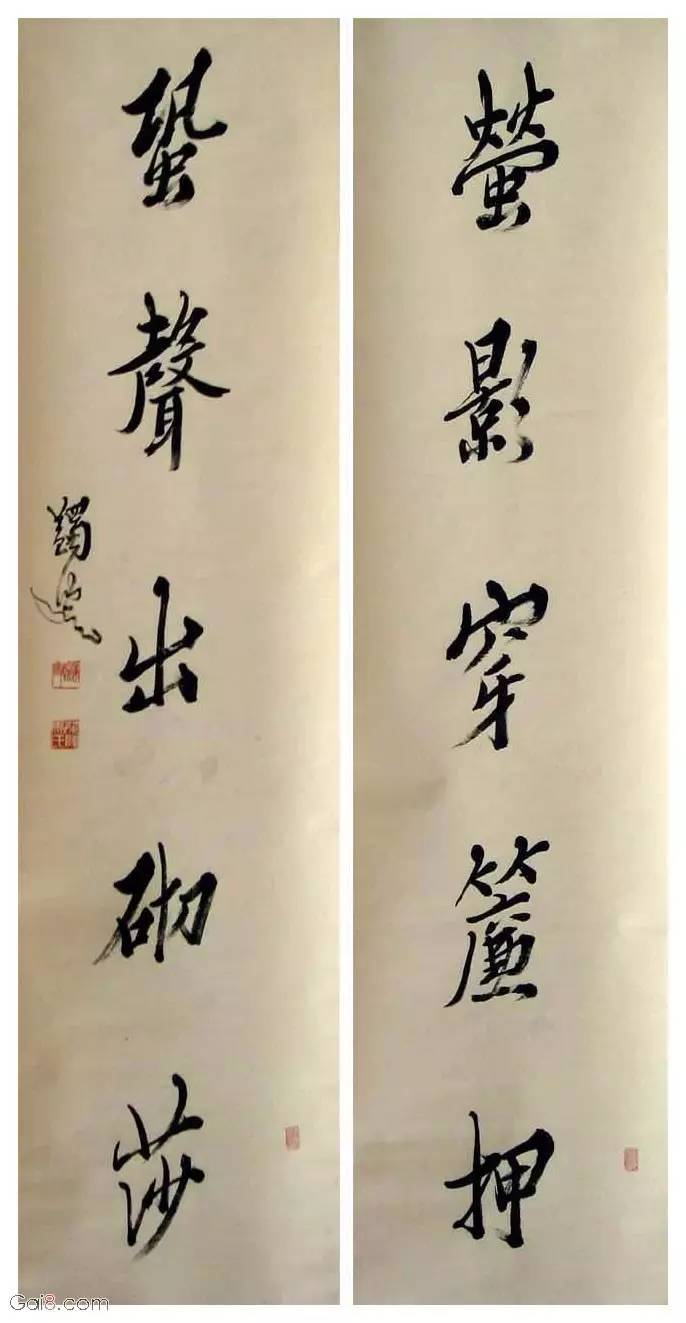 螢影穿簾押
蛩聲出砌莎
蠲
Gai8.com